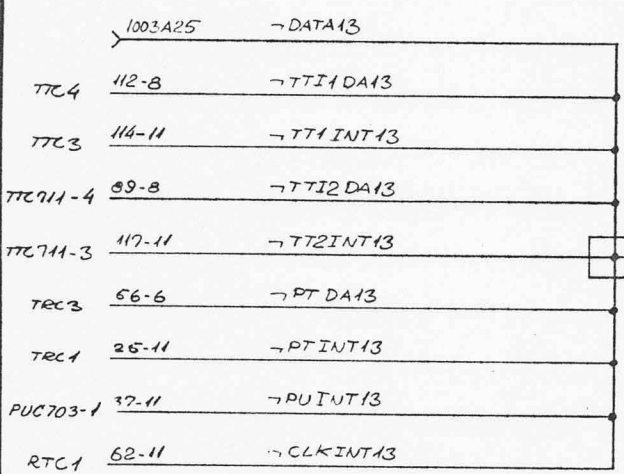 1003A25 ¬DATA13
TTC4 112-8 ¬TTI1DA13
TTC3 114-11 ¬TT1INT13
TTC711-4 89-8 ¬TTI2DA13
TTC711-3 117-11 ¬TT2INT13
TRC3 56-6 ¬PTDA13
TRC1 25-11 ¬PTINT13
PUC703-1 37-11 ¬PUINT13
RTC1 62-11 ¬CLKINT13